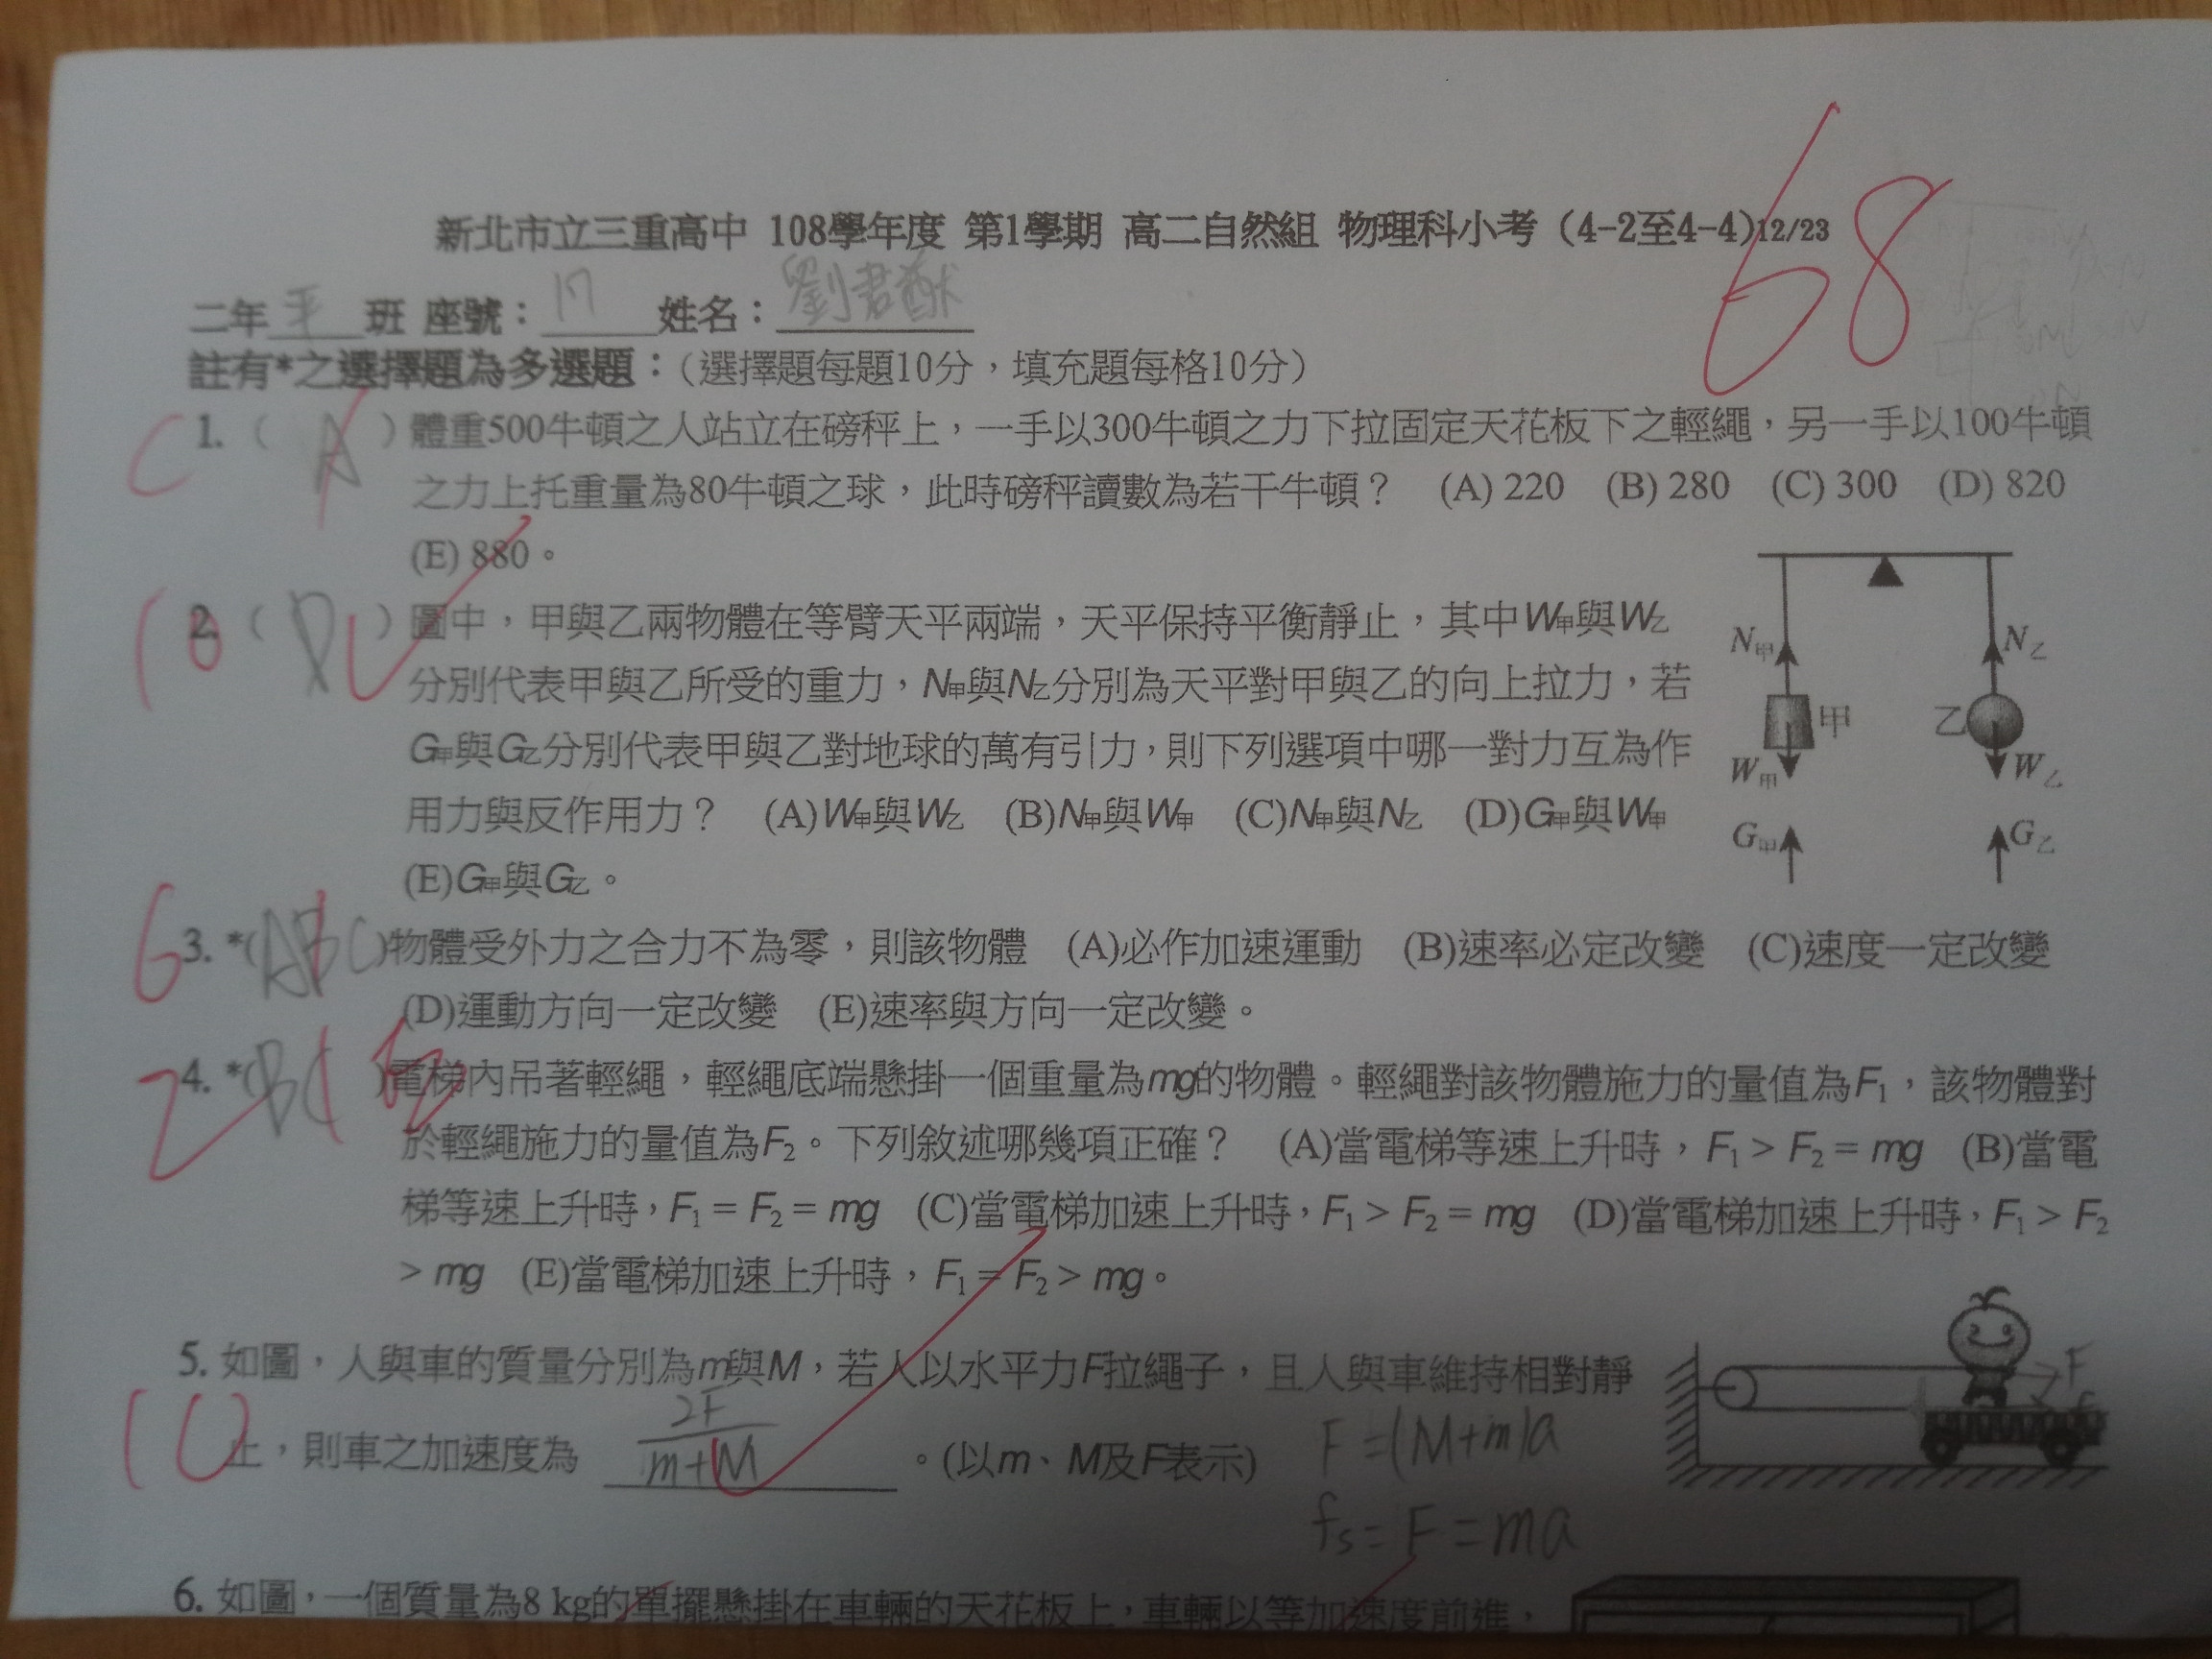 新北市立三重高中 108學年度 第1學期 高二自然組 物理科小考 (4-2至4-4)12/23
68
二年 平 班 座號： 17 姓名： 劉君猷
註有*之選擇題為多選題：（選擇題每題10分，填充題每格10分）
C 1. （ A ）體重500牛頓之人站立在磅秤上，一手以300牛頓之力下拉固定天花板下之輕繩，另一手以100牛頓
之力上托重量為80牛頓之球，此時磅秤讀數為若干牛頓？ (A) 220 (B) 280 (C) 300 (D) 820
(E) 880。
10 2. （ D ）圖中，甲與乙兩物體在等臂天平兩端，天平保持平衡靜止，其中W甲與W乙
分別代表甲與乙所受的重力，N甲與N乙分別為天平對甲與乙的向上拉力，若
G甲與G乙分別代表甲與乙對地球的萬有引力，則下列選項中哪一對力互為作
用力與反作用力？ (A)W甲與W乙 (B)N甲與W甲 (C)N甲與N乙 (D)G甲與W甲
(E)G甲與G乙。
N甲 N乙
甲 乙
W甲 W乙
G甲 G乙
6 3. *(ABC)物體受外力之合力不為零，則該物體 (A)必作加速運動 (B)速率必定改變 (C)速度一定改變
(D)運動方向一定改變 (E)速率與方向一定改變。
2 4. *(BC E )電梯內吊著輕繩，輕繩底端懸掛一個重量為mg的物體。輕繩對該物體施力的量值為F₁，該物體對
於輕繩施力的量值為F₂。下列敘述哪幾項正確？ (A)當電梯等速上升時，F₁ > F₂ = mg (B)當電
梯等速上升時，F₁ = F₂ = mg (C)當電梯加速上升時，F₁ > F₂ = mg (D)當電梯加速上升時，F₁ > F₂
> mg (E)當電梯加速上升時，F₁ = F₂ > mg。
5. 如圖，人與車的質量分別為m與M，若人以水平力F拉繩子，且人與車維持相對靜
10 止，則車之加速度為 2F/m+M 。(以m、M及F表示)
F
F =(M+m)a
fs = F = ma
6. 如圖，一個質量為8 kg的單擺懸掛在車輛的天花板上，車輛以等加速度前進，